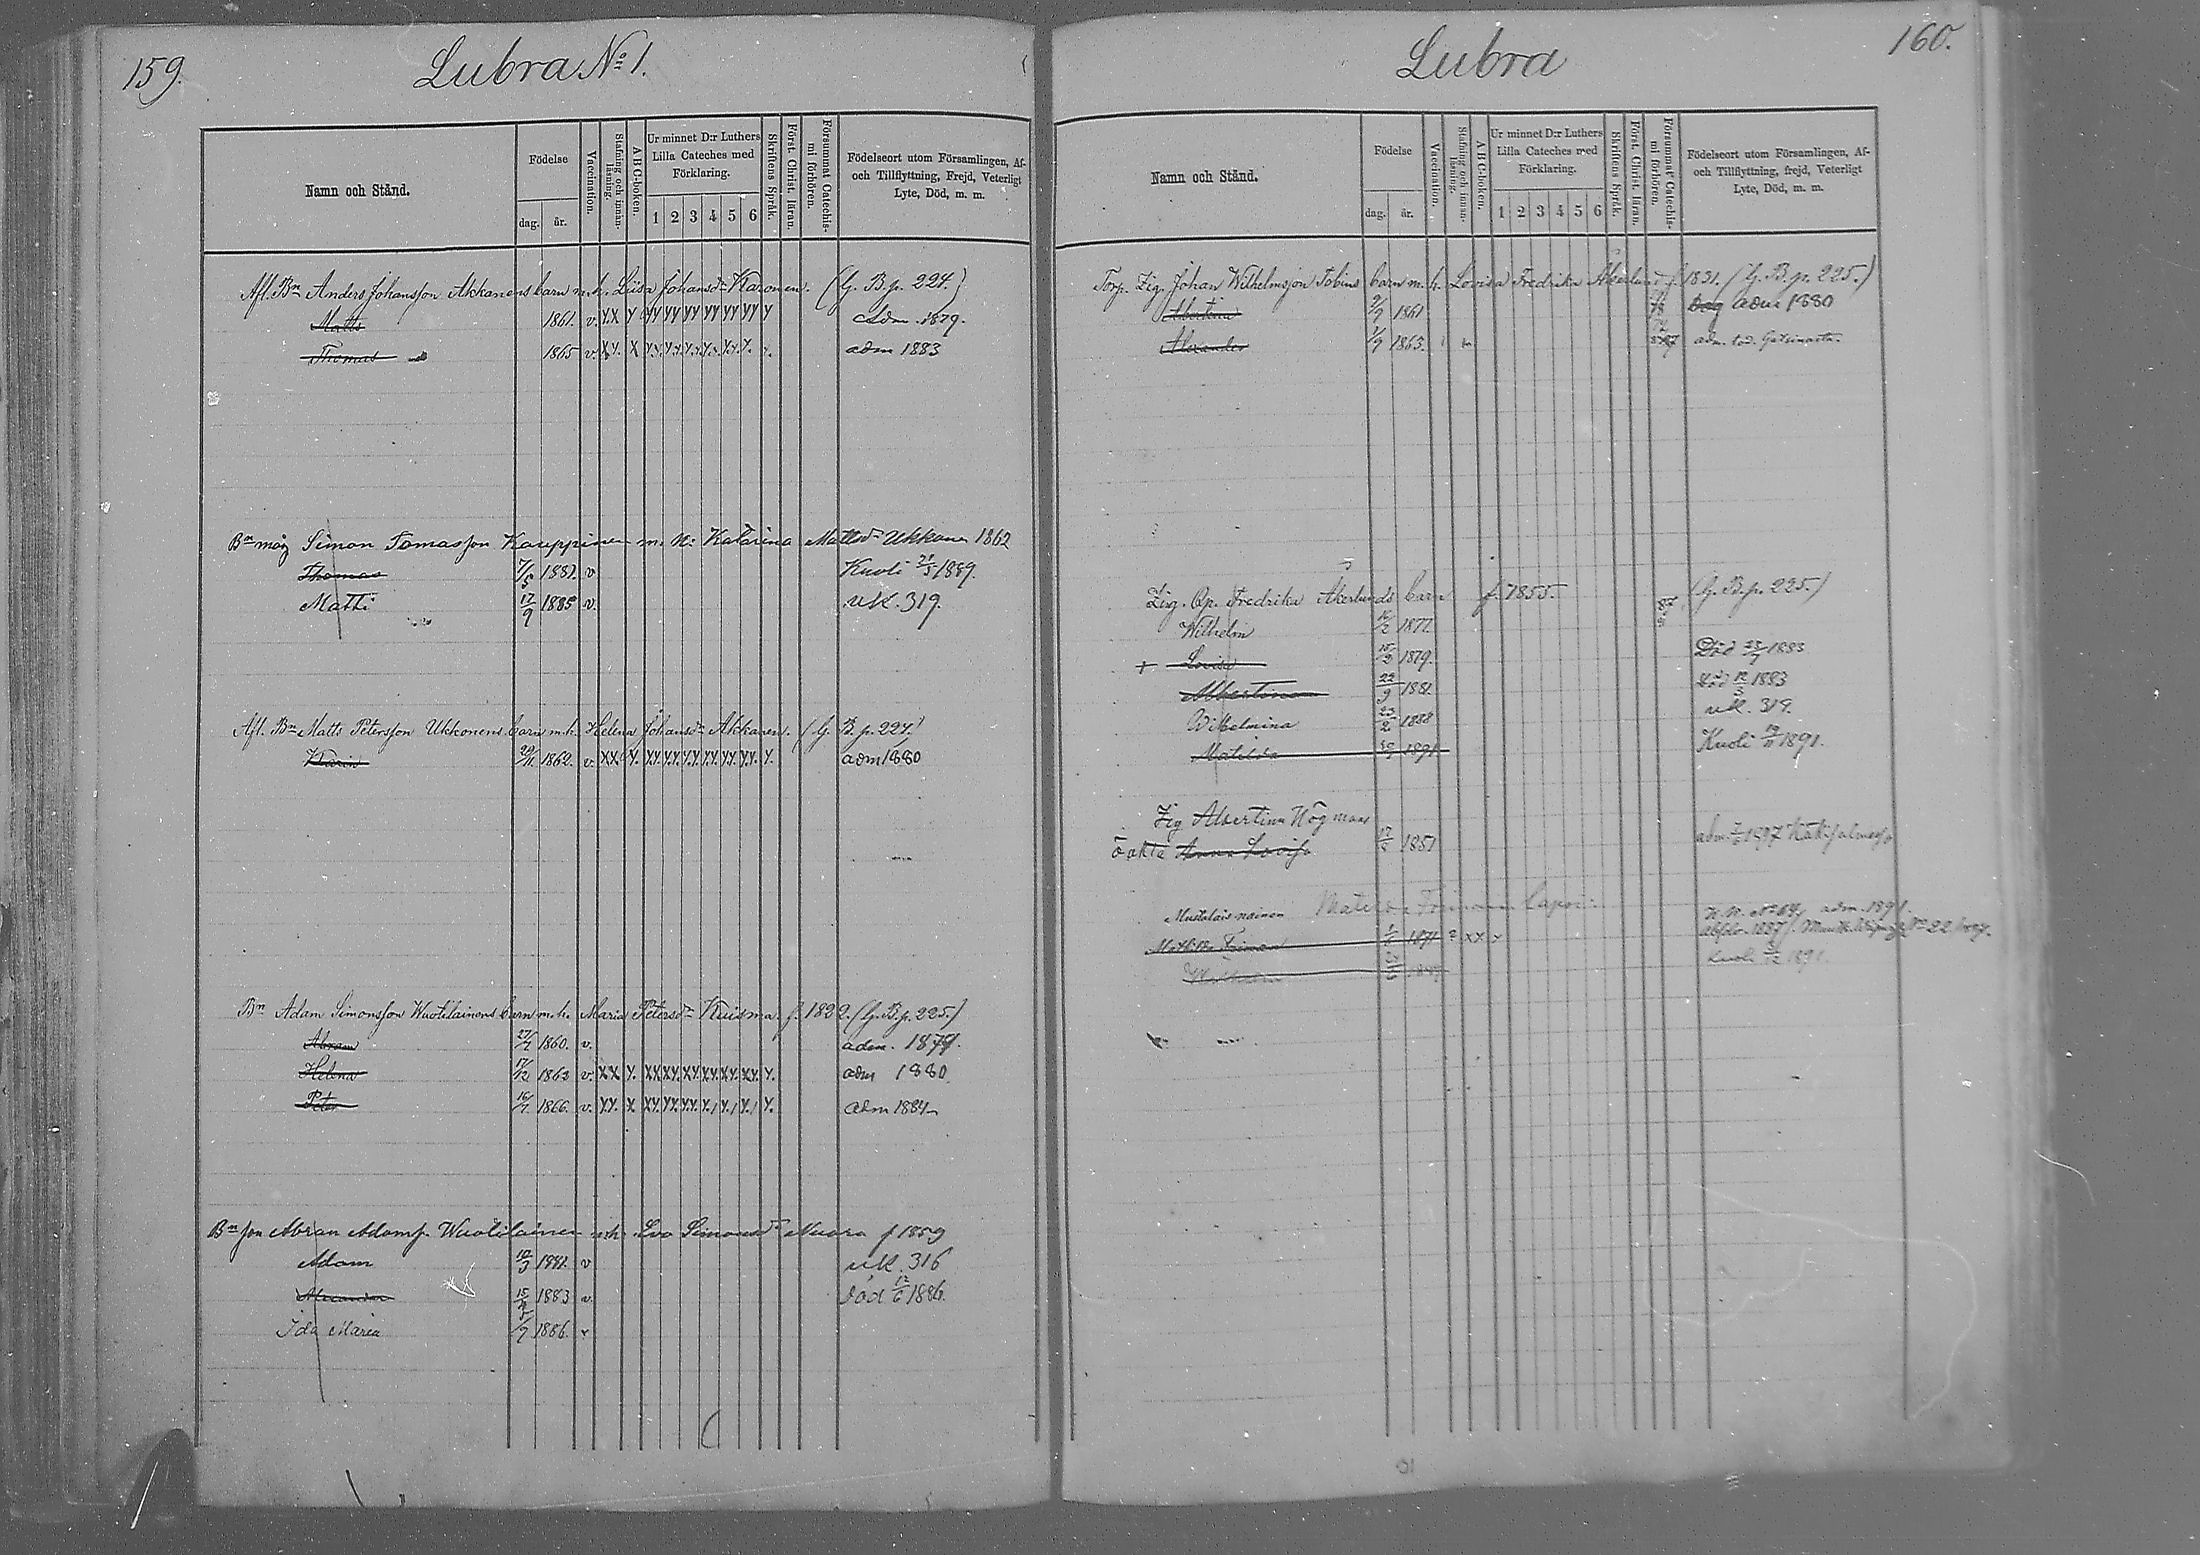 159.
Lubra No 1.
Namn och Stånd.
Födelse
dag. år.
Vaccination.
Stafning och innanläsning.
A B C-boken.
Ur minnet D:r Luthers Lilla Cateches med Förklaring.
1 2 3 4 5 6
Skriftens Språk.
Först. Christ. läran.
Försummat Catechismi förhören.
Födelseort utom Församlingen, Af- och Tillflyttning, Frejd, Veterligt Lyte, Död, m. m.
Afl. Bn Anders Johansson Akkanens barn m. h. Liisa Johansdr (G. B. p. 224.)
Matts 1861. v. adm. 1879.
Thomas 1865 v. adm 1883
Bn måg Simon Tomasson Kauppinen m. h: Katarina Mattsdr Ukkonen 1862
Thomas 7/5 1881. v Kuoli 1889.
Matti 17/9 1885 v. uk. 319.
Afl. Bn Matts Petersson Ukkonens barn m. h. Helena Johansdr Akkanen. (G. B. p. 224.)
Karin 1862. v. adm 1880
Bn Adam Simonsson Wuotilainens barn m. h. Maria Petersdr Kuisma f. 1822. (G. B. p. 225.)
Abram 27/7 1860. v. adm. 1879.
Helena 17/12 1863 v. adm 1880.
Peter 16/7 1866. v. adm 1884
Bn son Abran Adamss. Wuotilainen m. h. Eva Simonsdr Nuora f 1859
Adam v uk. 316
Alexander 1883 v. död 12/6 1886.
Ida Maria 1886. v
160.
Lubra
Namn och Stånd.
Födelse
dag. år.
Vaccination.
Stafning och innanläsning.
A B C-boken.
Ur minnet D:r Luthers Lilla Cateches med Förklaring.
1 2 3 4 5 6
Skriftens Språk.
Först. Christ. läran.
Försummat Catechismi förhören.
Födelseort utom Församlingen, Af- och Tillflyttning, frejd, Veterligt Lyte, Död, m. m.
Torp. Zig. Johan Wilhelmsson Tobins barn m. h. Lovisa Fredrika Åkerlund f. 1831. (G. B. p. 225.)
Albertina 2/7 1861 adm 1880
Alexander 1/7 1863. adm.
Zig. Qp. Fredrika Åkerlunds barn f. 1855. (G. B. p. 225.)
Wilhelm 1877.
+ Lovisa 15/3 1879. Död 1883
Albertina 22/9 1881. död 1883
Wilhelmina 23/2 1888 uk. 319.
Matilda 1891 Kuoli 1891.
Zig Albertina Högmans
oäkta Anna Lovisa 1881 adm.
Mustalais nainen
Mathilda Friman 1871 adm. 1891
Kuoli 1891.